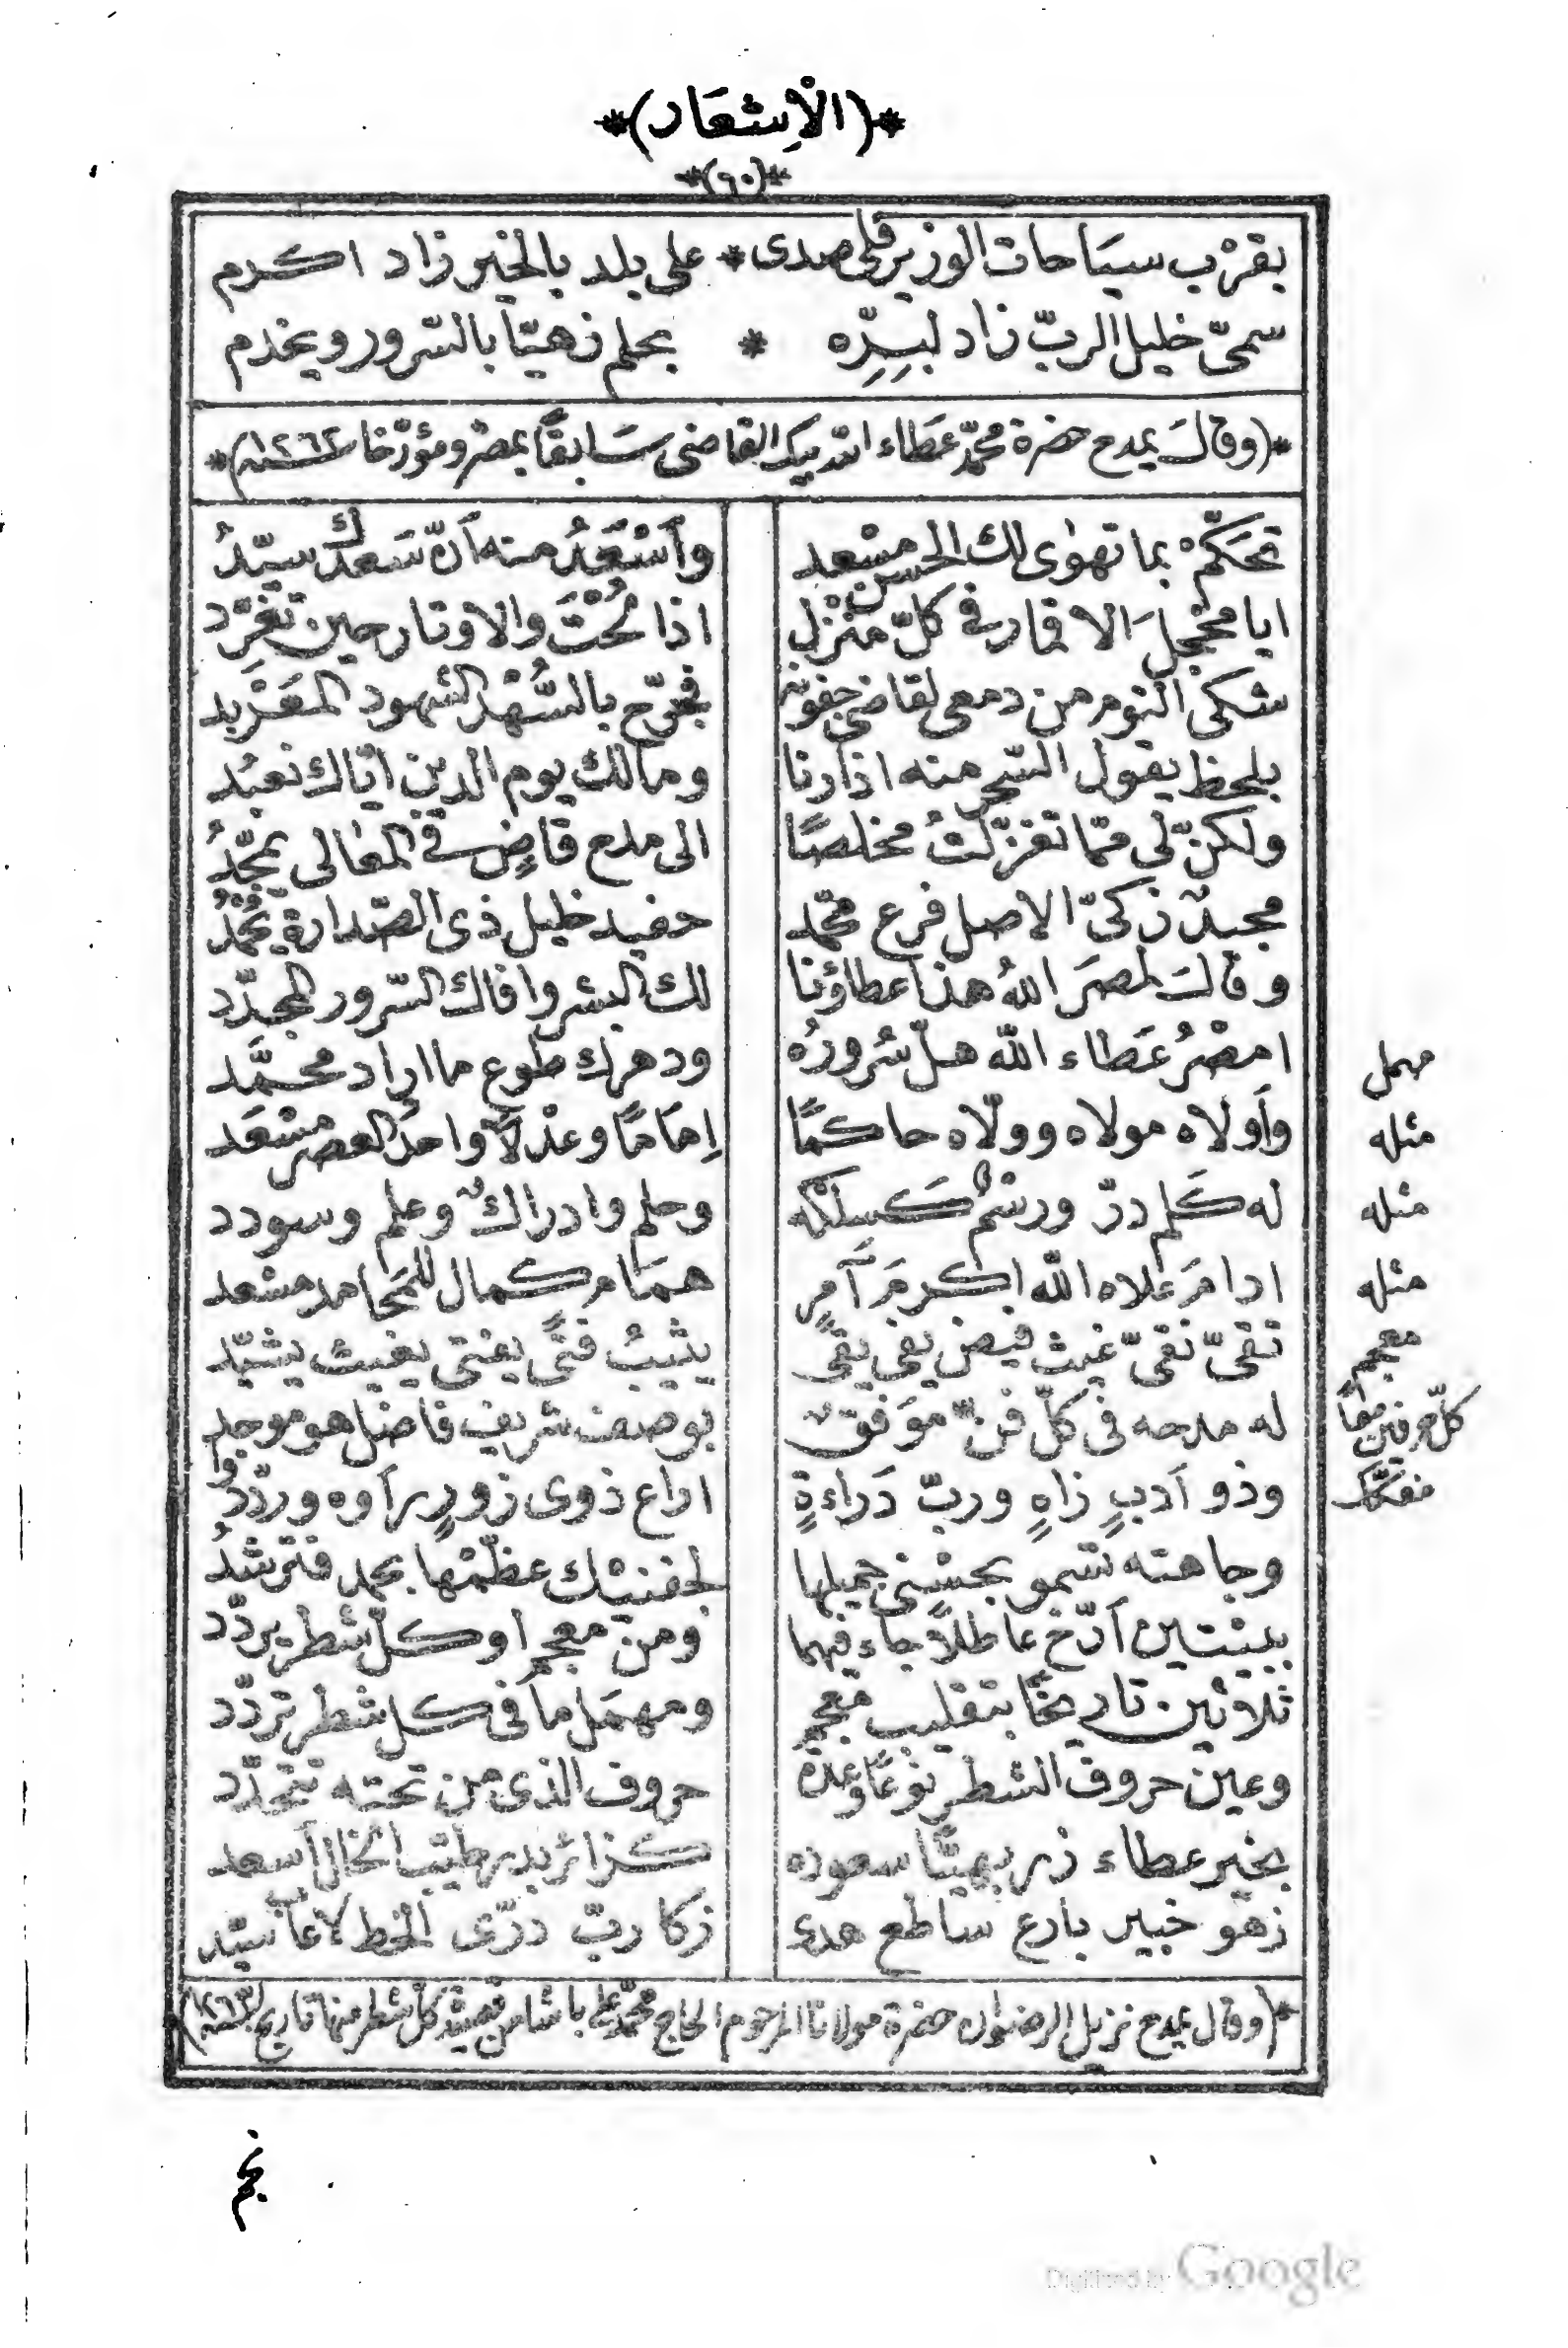 *(الْاِشعَار)*
*(٦٠)*
بقرْب سيَاحات الوزير فلى صدى * على بلد بالخير زاد اكرم
سمىّ خليل الربّ زاد لبِسِرِّه * بحلم زهيّا بالسّرور ويخدم
*(وقالَ يمدح حضرة محمّد عَطاء الله بيك القاضى سَابقًا بمصْر ومؤرّخا سنة ١٢٦٢)*
تحَكّمْ بما تهوٰى لك الحسن مسْعد وأسْعَدُ منه أنّ سَعدَك سيّدُ
ايا مخجلَ الاقمار فى كلّ منْزل اذا لُحْتَ والاوتار حين تغرّد
شكى النّوم من دمعى لقاضى جفونه فجرّح بالسُّهْد الشهود المعَرْبد
بلحظ يقول السّحر منه اذا رنا ومالك يوم الدين ايّاك نعبُد
ولكنّ لى ممّا تغزّلتُ مخلصًا الى مدح قاضٍ فى المعالى يمجَّدُ
مجيدٌ زكىّ الاصل فرع محمّد حفيد خليل ذى الصّدارة يُحْمَدُ
وقالَ لمصرَ اللهُ هذا عطاؤنا لك البشر وافاك السّرور المجدّد
امصْرُ عَطاء الله هلّ سُرورُه ودهرك طوع ما اراد محمَّد
مهمل
وأولاه مولاه وولّاه حاكمًا إمَامًا وعدْلاً واحدُ العصر مسْعَد
مثله
له كَلم درّ ورسْمٌ كَسلكه وحلم وادراكٌ وعلم وسودد
مثله
ادامَ علاه الله اكرمَ آمرٍ همَام كمال للمَحامد مسْعد
مثله
تقىّ نقىّ غيث فيض يفى يقى يثيبُ فتًى يفتى يغيث يشيّد
معجم
له مدحه فى كلّ فنّ موَفق بوصف شريف فاضل هو موجد
كلّ حرفين معًا
وذو أدبٍ زاهٍ وربّ دَراءةٍ اراع ذوى زورٍ رأوه وردّدُوا
مفكّك
وجاهته تسمو بحسْنى جميلها لجفنيْك عظّمْها بحمد فترشدُ
ببيْتين أرّخ عاطلاً جاء فيهما ومن معجم او كلّ شطر يردّد
ثلاثين تاريخًا بتقليب معجم ومهمَل ما فى كل شطر تردّد
وعين حروف الشطر نوعًا وعدّة حروف الذى من تحته تتحدّد
بخير عطاء زر بهيّا سعوده كزائر بدر طيّب الخال أسعد
زهو خبير بارع ساطع هدى زكا ربّ درّى الخط لا عاب سيّد
*(وقال يمدح نزيل الرضوان حضرة مولانا المرحوم الحاج محمّد على باشا من قصيدة كلّ شطر منها تاريخ سنة ١٢٦٣)*
نجم
Digitized by Google